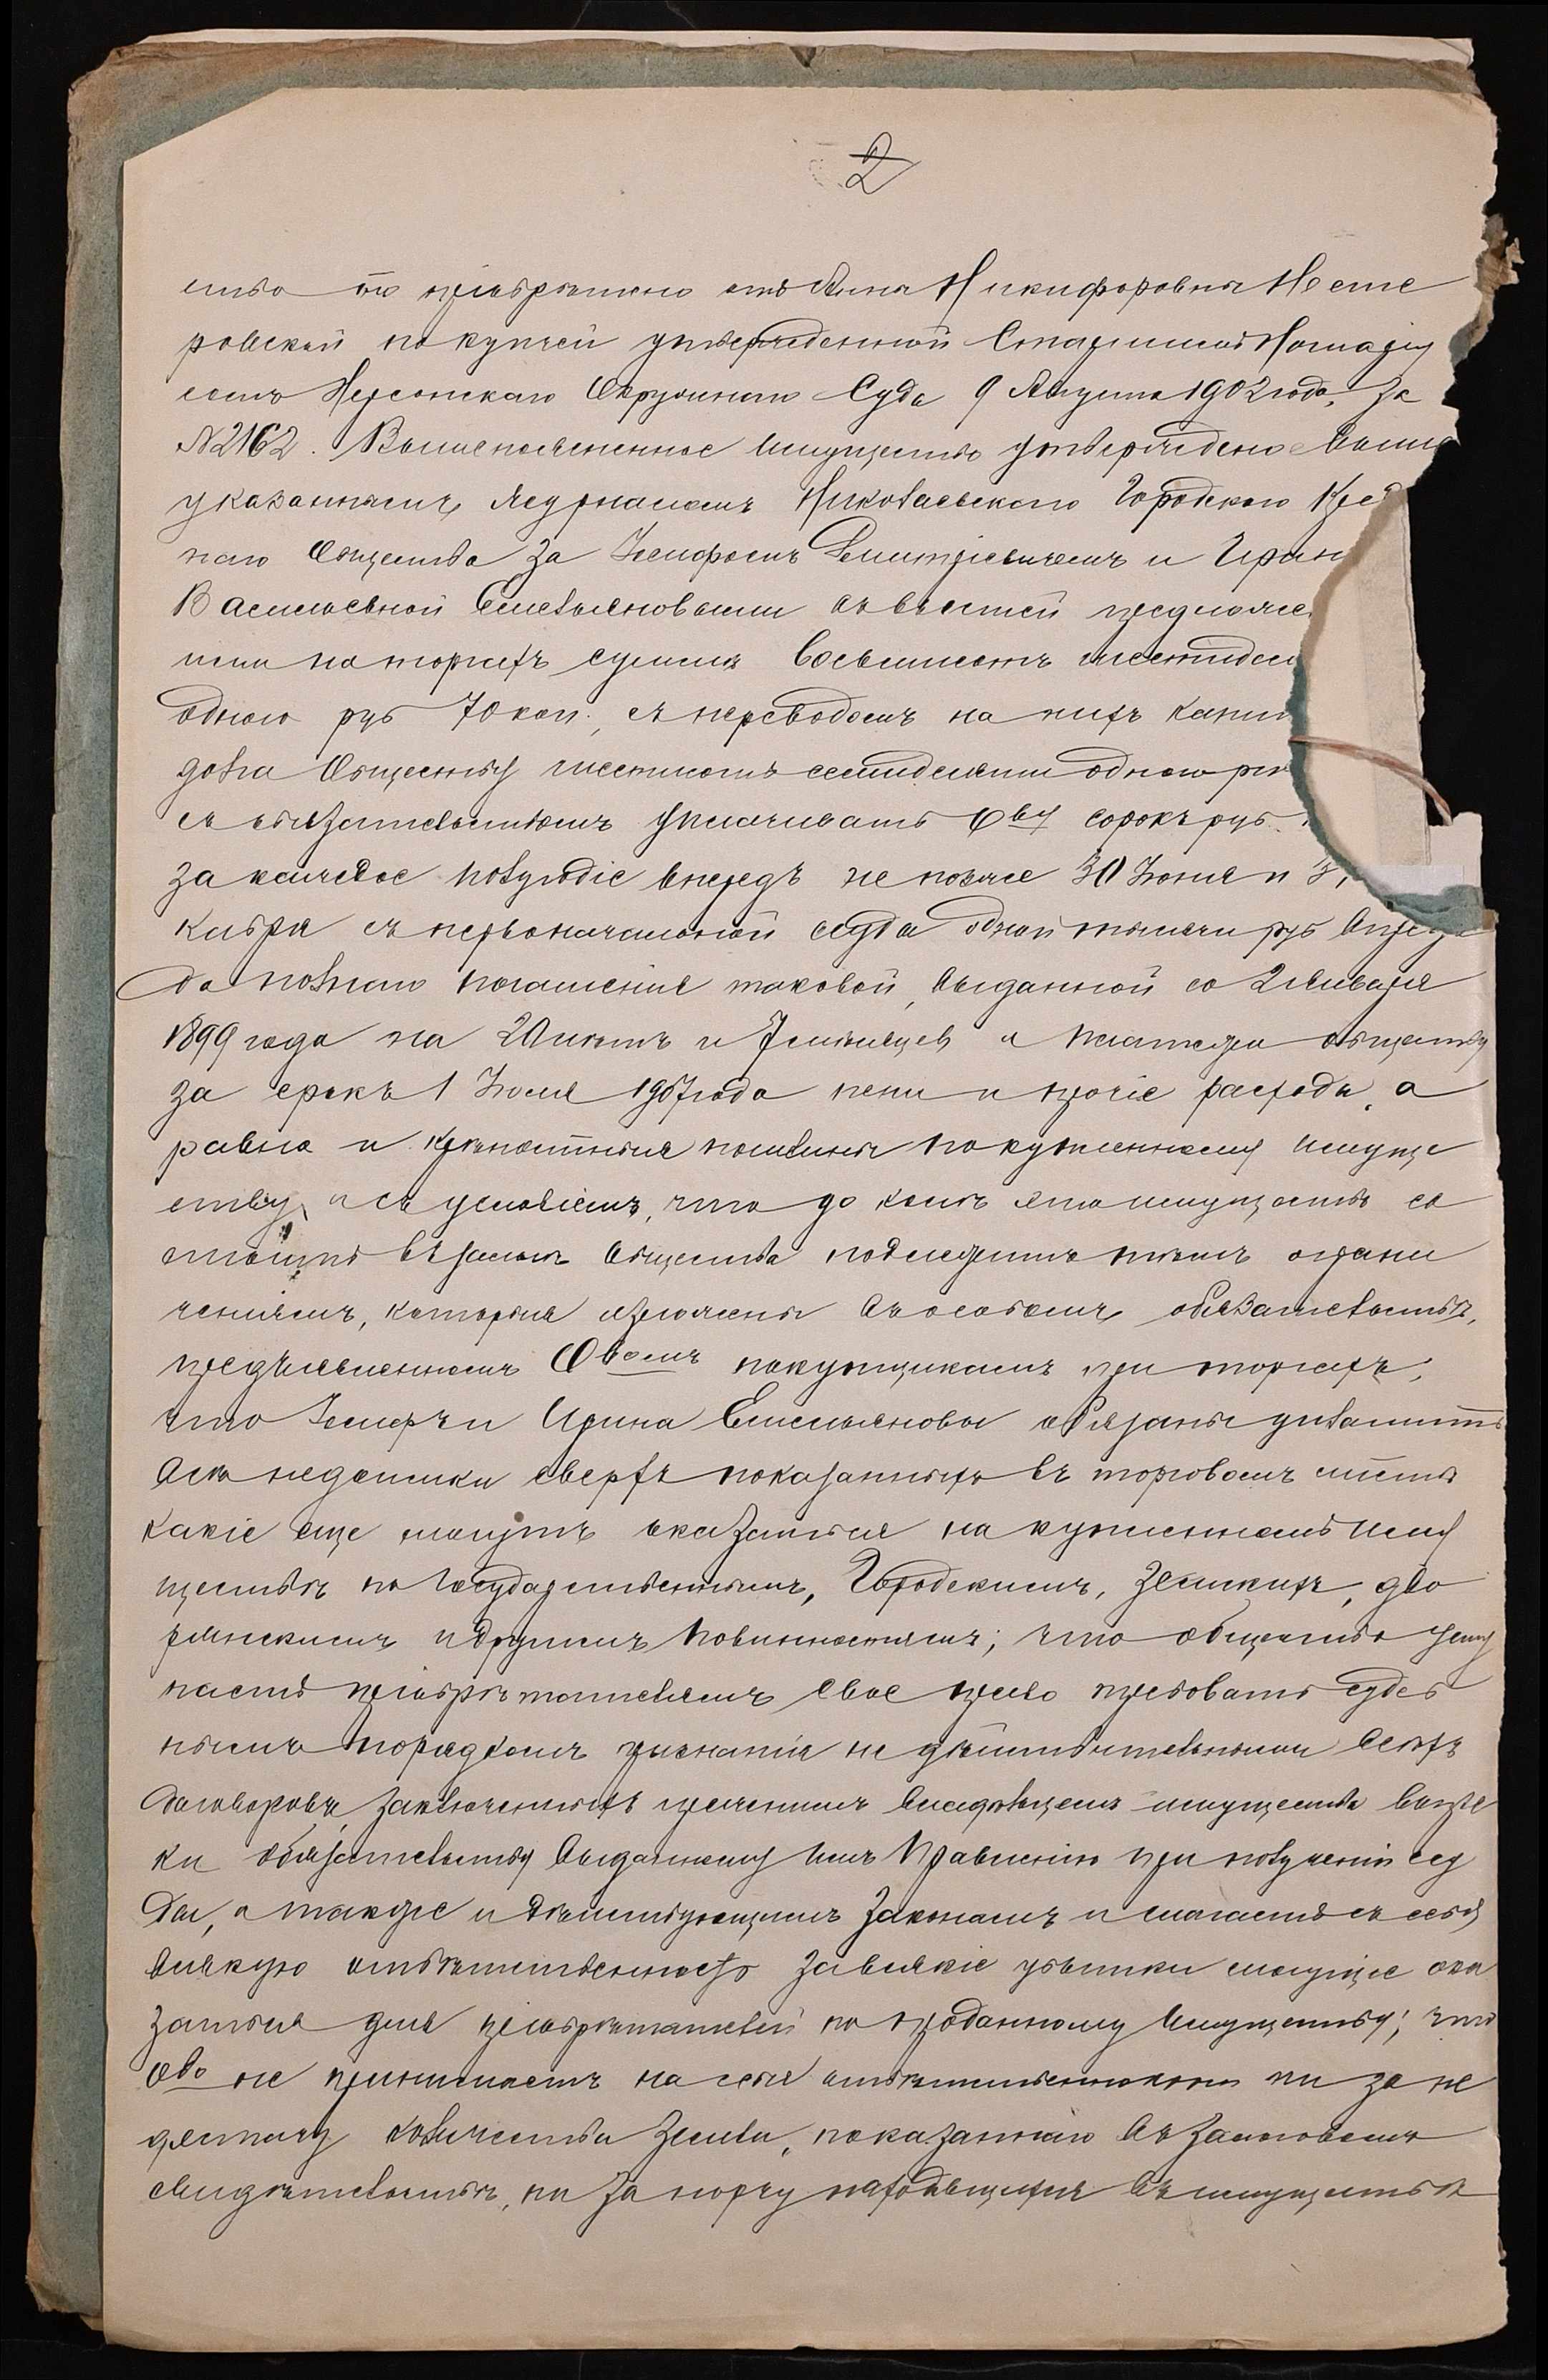 2
ство это пріобрѣтено отъ Анны Никифоровны Несте
ровской по купчей утвержденной Старшимъ Нотаріу
сомъ Херсонскаго Окружнаго Суда 9 Августа 1902 года, за
№ 2162. Вышепоясненное имущество утверждено выше
указаннымъ журналомъ Николаевскаго Городского Кред
наго Общества за Іосифомъ Дмитріевичемъ и Ирин
Васильевной Емельяновыми въ высшей предложен
ими на торгахъ суммѣ восемьсотъ шестьдеся
одного руб 70 коп., съ переводомъ на нихъ капит
долга Обществу шестисотъ семидесяти одного ру
съ обязательствомъ уплачивать Обву сорокъ руб.
за каждое полугодіе впередъ не позже 30 Іюня и 3
кабря съ первоначальной ссуды одной тысячи руб впредь
до полнаго погашенія таковой, выданной со 2 Января
1899 года на 20 лѣтъ и 7 мѣсяцев и платежи обществу
за срокъ 1 Іюля 1907 года пени и прочіе расходы, а
равно и крѣпостныя пошлины по купленному имуще
ству, и съ условіемъ, что до колѣ это имущество со
стоитъ въ залогѣ Общества подлежитъ тѣмъ ограни
ченіямъ, которыя изложены въ особомъ обязательствѣ,
предъявленномъ Обвомъ покупщикамъ при торгахъ;
что Іосифъ и Ирина Емельяновы обязаны уплатить
всѣ недоимки сверхъ показанныхъ въ торговомъ листѣ
какіе еще могутъ оказаться на купленномъ иму
ществѣ по Государственнымъ, Городскимъ, Земскихъ, дво
рянскимъ и другимъ повинностямъ; что общество усту
паетъ пріобрѣтателямъ свое право требовать судеб
нымъ порядкомъ признанія не дѣйствительными всѣхъ
договоровъ, заключенныхъ прежнимъ владѣльцемъ имущества вопре
ки обязательству выданному имъ Правленію при полученіи ссу
ды, а также и дѣйствующимъ законамъ и слагаетъ съ себя
всякую отвѣтственность за всякіе убытки могущіе ока
заться для пріобрѣтателей по проданному имуществу; что
Обво не принимаетъ на себя отвѣтственности ни за не
достачу количества земли, показаннаго въ залоговомъ
свидѣтельствѣ, ни за порчу находящихся въ имуществѣ